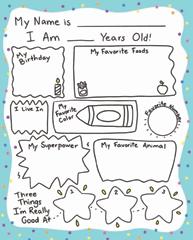 My Name is ____________
I Am ____ Years Old!
My Birthday
My Favorite Foods
I Live In
My Favorite Color
Favorite Number
My Superpower
My Favorite Animal
Three Things I'm Really Good At
1
2
3